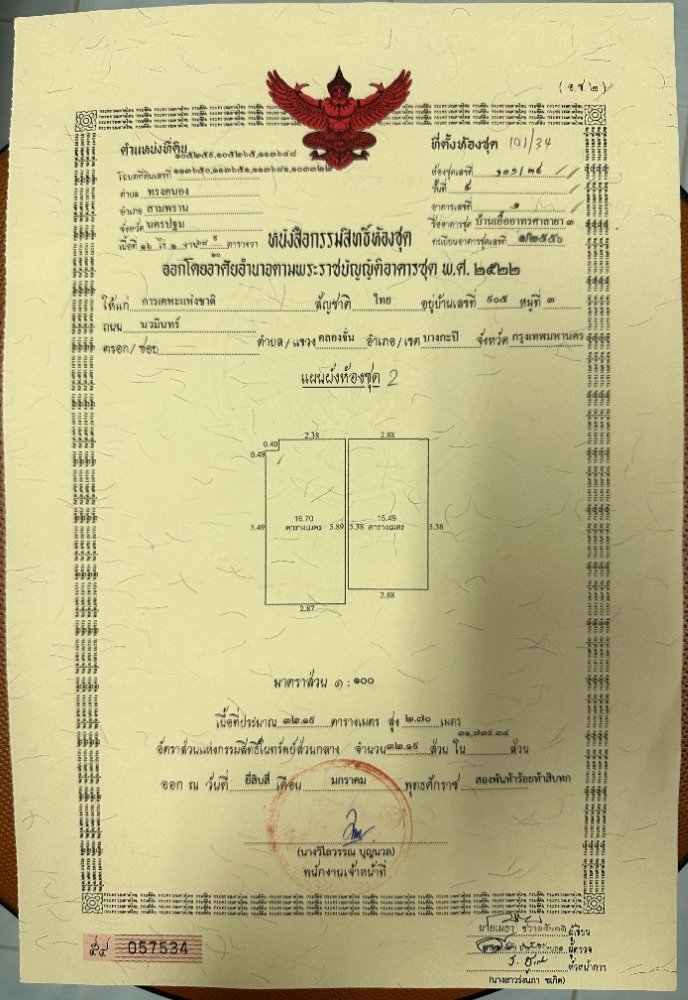 (อ.ช.๒)
ตำแหน่งที่ดิน
๑๐๕๒๕๙,๑๐๕๒๖๕,๑๑๓๖๔๘
โฉนดที่ดินเลขที่ ๑๑๓๖๕๐,๑๑๓๖๕๑,๑๑๓๖๘๑,๑๐๓๓๒๒
ตำบล ทรงคนอง
อำเภอ สามพราน
จังหวัด นครปฐม
เนื้อที่ ๑๖ ไร่ ๑ งาน ตารางวา
ที่ตั้งห้องชุด 101/34
ห้องชุดเลขที่ ๑๐๑/๓๔
ชั้นที่
อาคารเลขที่ ๑
ชื่ออาคารชุด บ้านเอื้ออาทรศาลายา ๓
ทะเบียนอาคารชุดเลขที่ ๑/๒๕๕๖
หนังสือกรรมสิทธิ์ห้องชุด
ออกโดยอาศัยอำนาจตามพระราชบัญญัติอาคารชุด พ.ศ. ๒๕๒๒
ให้แก่ การเคหะแห่งชาติ สัญชาติ ไทย อยู่บ้านเลขที่ ๙๐๕ หมู่ที่ ๓
ถนน นวมินทร์
ตรอก/ซอย ตำบล/แขวง คลองจั่น อำเภอ/เขต บางกะปิ จังหวัด กรุงเทพมหานคร
แผนผังห้องชุด 2
2.38 2.88
0.40
0.49
5.49 16.70 5.89 5.38 15.49 5.38
ตารางเมตร ตารางเมตร
2.88
2.87
มาตราส่วน ๑ : ๑๐๐
เนื้อที่ประมาณ ๓๒.๑๙ ตารางเมตร สูง ๒.๗๐ เมตร
๓๑,๗๓๙.๓๔
อัตราส่วนแห่งกรรมสิทธิ์ในทรัพย์ส่วนกลาง จำนวน ๓๒.๑๙ ส่วน ใน ส่วน
ออก ณ วันที่ ยี่สิบสี่ เดือน มกราคม พุทธศักราช สองพันห้าร้อยห้าสิบหก
(นางวิไลวรรณ บุญนวล)
พนักงานเจ้าหน้าที่
057534
ผู้เขียน
ผู้ตรวจ
หัวหน้าการ